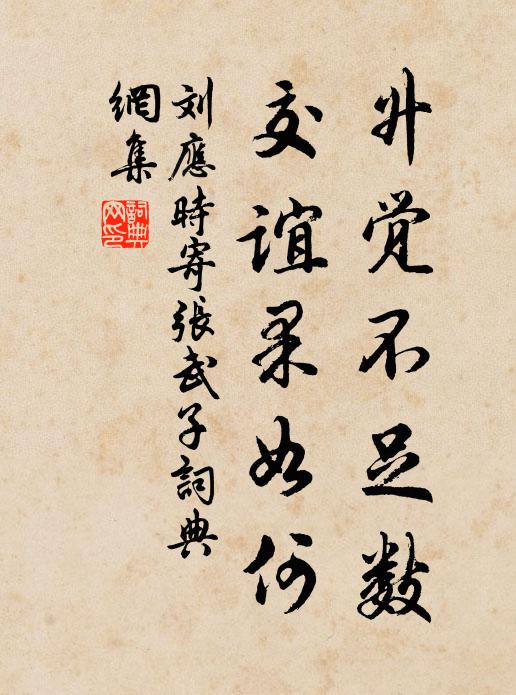 升觉不足数
交谊果如何
刘應時寄張武子詞典
網集
詞典
网印